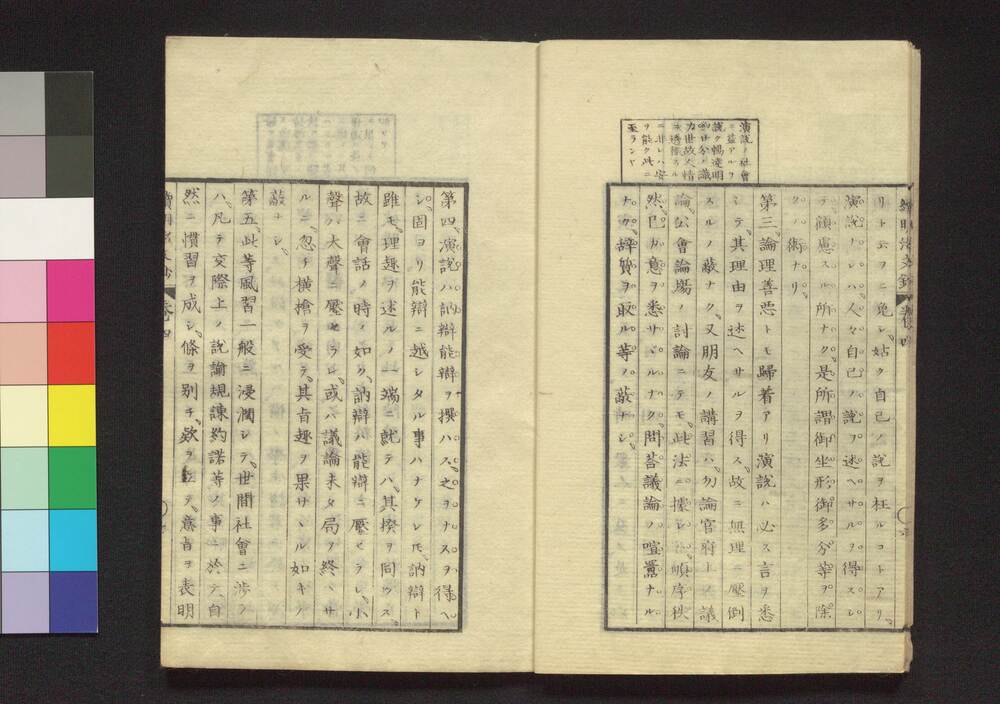 演説ノ社會
ニ益アルヿ
説ク暢達明
力世故人情
ニ非レハ安
ヲ能ク此ニ
至ランヤ
リト云ヲニ免シ姑ク自己ノ説ヲ枉ルコトアリ
演説ナレハ人々自己ノ説ヲ述ヘサルヲ得スシ
テ顧慮スル所ナク是所謂御坐形御多分等ヲ除
クノ術ナリ
第三論理善惡トモ歸着アリ演説ハ必ス言ヲ悉
シテ其理由ヲ述ヘサルヲ得ス故ニ無理ニ壓倒
スルノ蔽ナク又朋友ノ講習ハ勿論官府上ノ議
論公會論場ノ討論ニテモ此法ニ據レハ順序秩
然已カ意ヲ悉サヽルナク問荅議論ノ喧囂ナル
ナク辞質ヲ取ル等ノ蔽ナシ
第四演説ハ訥辯能辯ヲ撰ハス之ヲナスヲ得ヘ
シ固ヨリ能辯ニ越シタル事ハナケレ𪜈訥辯ト
雖モ理趣ヲ述ルノ一端ニ就テハ其揆ヲ同ウス
故ニ會話ノ時ノ如ク訥辯ハ能辯ニ壓セラレ小
聲ハ大聲ニ壓セラレ或ハ議論未タ局ヲ終ヘサ
ルニ忽チ横槍ヲ受テ其旨趣ヲ果サヽル如キノ
蔽ナシ
第五此等風習一般ニ浸潤シテ世間社會ニ渉ノ
ハ凡テ交際上ノ説諭規諫約諾等ノ事ニ於テ自
然ニ慣習ヲ成シ條ヲ別チ欵ヲ立テ意旨ヲ表明